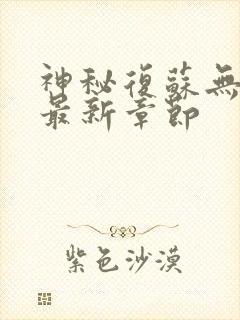 神秘復蘇無
最新章節
紫色沙漠